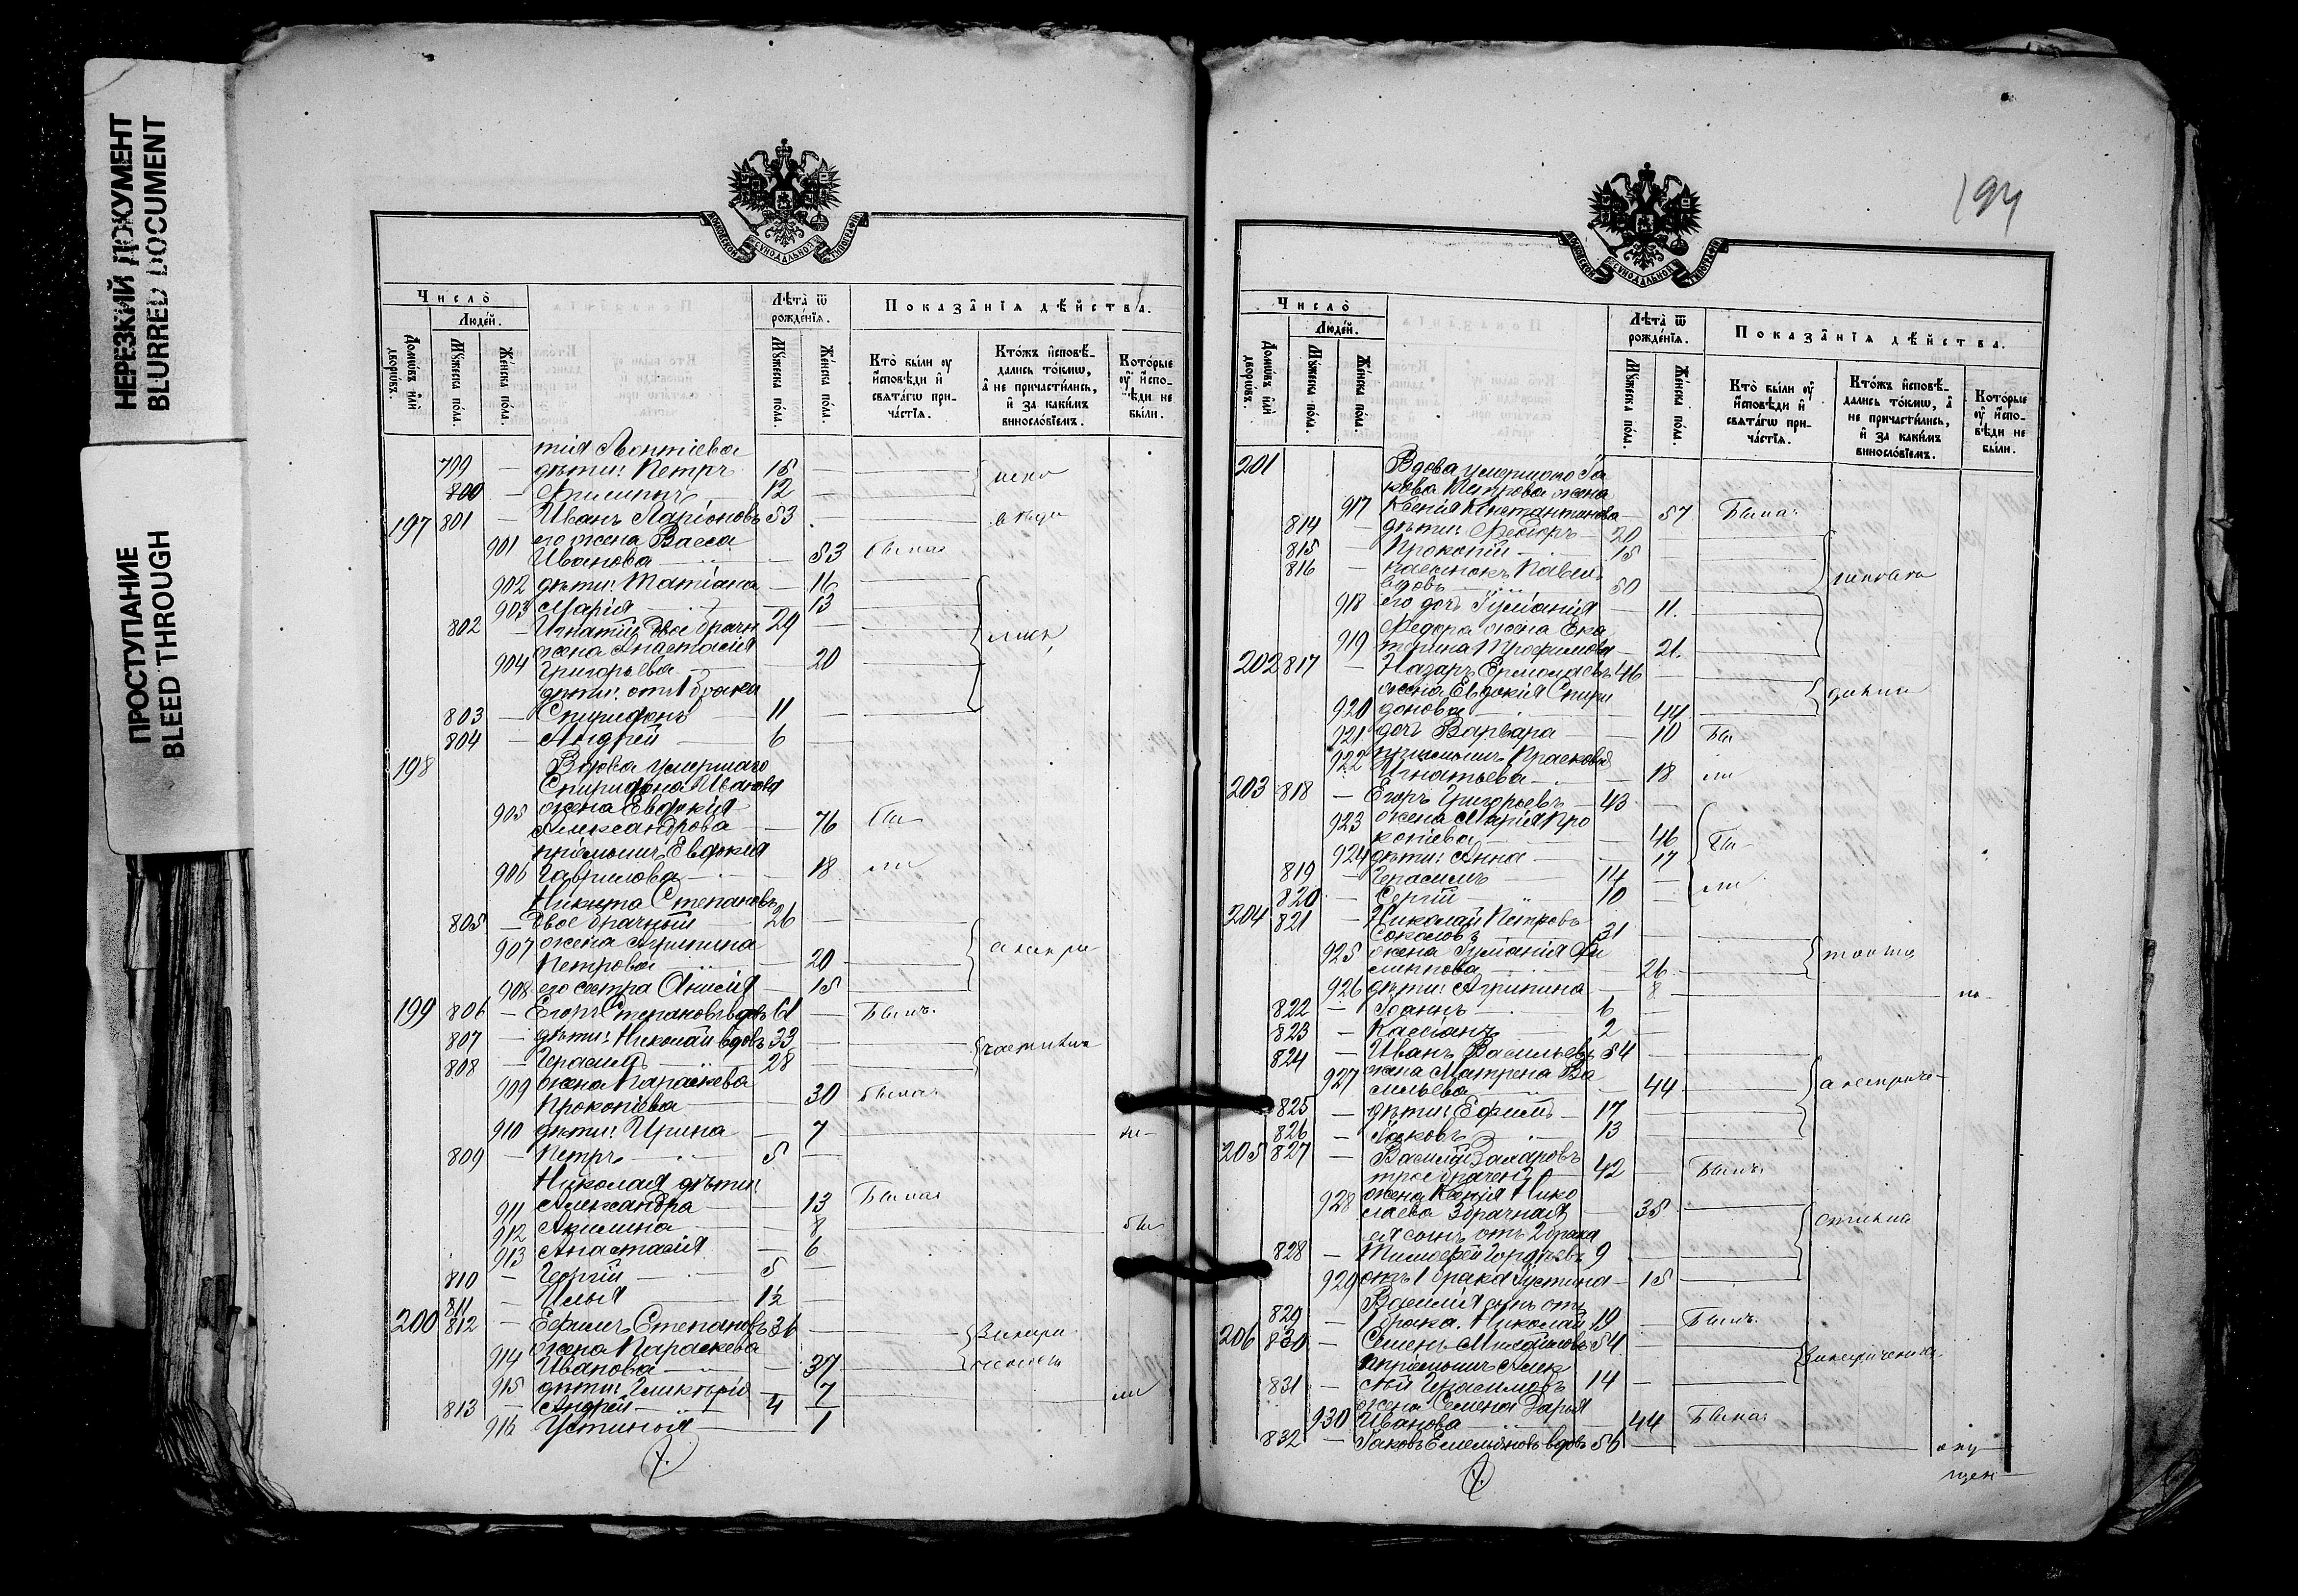 НЕРЕЗКИЙ ДОКУМЕНТ
BLURRED DOCUMENT
ПРОСТУПАНИЕ
BLEED THROUGH
МОСКОВСКОЙ СѴНОДАЛЬНОЙ ТИПОГРАФІИ
Число
Людей.
Домѡвъ или дворѡвъ.
Мꙋжеска пола.
Женска пола.
Лѣта ѿ рожденїѧ.
Мꙋжеска пола.
Женска пола.
Показанїѧ дѣйства.
Кто были оу исповѣди и свѧтагѡ причастїѧ.
Ктожъ исповѣдались токмѡ, а не причастились, и за какимъ винословїемъ.
Которые оу исповѣди не были.
тія Леонтіева
799 — дѣти: Петръ 15
800 — Филиппъ 12
197 801 — Иванъ Ларіоновъ 53
его жена Васса
901 Иванова — 53 была
902 дѣти: Татіана — 16
903 Марія — 13
802 — Игнатій двоебрачн 29
жена Анастасія
904 Григорьева — 20
дѣти: отъ 1 брака
803 — Спиридонъ 11
804 — Андрей 6
198 Вдова умершаго
Спиридона Иванова
905 жена Евдокія
Александрова — 76 бы
пріемышъ Евдокія
906 Гаврилова — 18 ли
Никита Степановъ
805 — Двоебрачный 26
907 жена Агрипина
Петрова — 20
908 его сестра Анисія — 15
199 806 — Егоръ Степановъ вдовъ 61 — Былъ
807 — дѣти: Николай вдовъ 33
808 — Герасимъ 28
909 жена Параскева
Прокопіева 30 была
910 дѣти: Ирина — 7 не
809 — Петръ 5
Николая дѣти:
911 Александра — 13 Была
912 Акилина 8 бы
913 Анастасія — 6
810 — Георгій 5
811 — Илья 1½
200 812 — Ефимъ Степановъ 36
жена Параскева
914 Иванова — 37
915 дѣти: Гликерія — 7 ли
813 — Андрей 4
916 Устинья — 1
194
МОСКОВСКОЙ СѴНОДАЛЬНОЙ ТИПОГРАФІИ
Число
Людей.
Домѡвъ или дворѡвъ.
Мꙋжеска пола.
Женска пола.
Лѣта ѿ рожденїѧ.
Мꙋжеска пола.
Женска пола.
Показанїѧ дѣйства.
Кто были оу исповѣди и свѧтагѡ причастїѧ.
Ктожъ исповѣдались токмѡ, а не причастились, и за какимъ винословїемъ.
Которые оу исповѣди не были.
201 Вдова умершаго Іа
кова Петрова жена
917 Ксенія Константинова — 57 Была
814 — дѣти: Ѳедоръ 20
815 — Прокопій 15
816 — пасынокъ Павелъ
вдовъ 50
918 его дочь Іуліанія — 11
Ѳедора жена Ека
919 терина Трофимова — 21
202 817 — Назаръ Ермолаевъ 46
жена Евдокія Спири
920 донова — 44
921 дочь Варвара — 10 Бы
922 пріемышъ Прасковья
Игнатьева — 18 ли
203 818 — Егоръ Григорьевъ 43
жена Марія Про
923 копіева — 46 Бы
924 дѣти: Анна — 17
819 — Герасимъ 14
820 — Сергій 10 ли
204 821 — Николай Петровъ
Соколовъ 31
925 жена Іуліанія Фи
липпова 26
926 дѣти: Агрипина 8 не
822 — Іоаннъ 6
823 — Кассіанъ 2
824 — Иванъ Васильевъ 54
927 жена Матрена Ва
сильева — 44
825 — дѣти: Ефимъ 17
826 — Іаковъ 13
205 827 — Василій Захаровъ
троебрачный 42 Былъ
928 жена Ксенія Нико
лаева 3 брачная — 35
ея сынъ отъ 2 брака
828 — Тимофей Гордѣевъ 9
929 отъ 1 брака Іустина — 15
Василія сынъ отъ
829 — 1 брака. Николай 19 — Былъ
206 830 — Семенъ 54
пріемышъ Алек
831 — сѣй Герасимовъ 14
жена Семена Дарья
930 Иванова — 44 Была
832 — Іаковъ Емельяновъ вдовъ 56 опу
щен